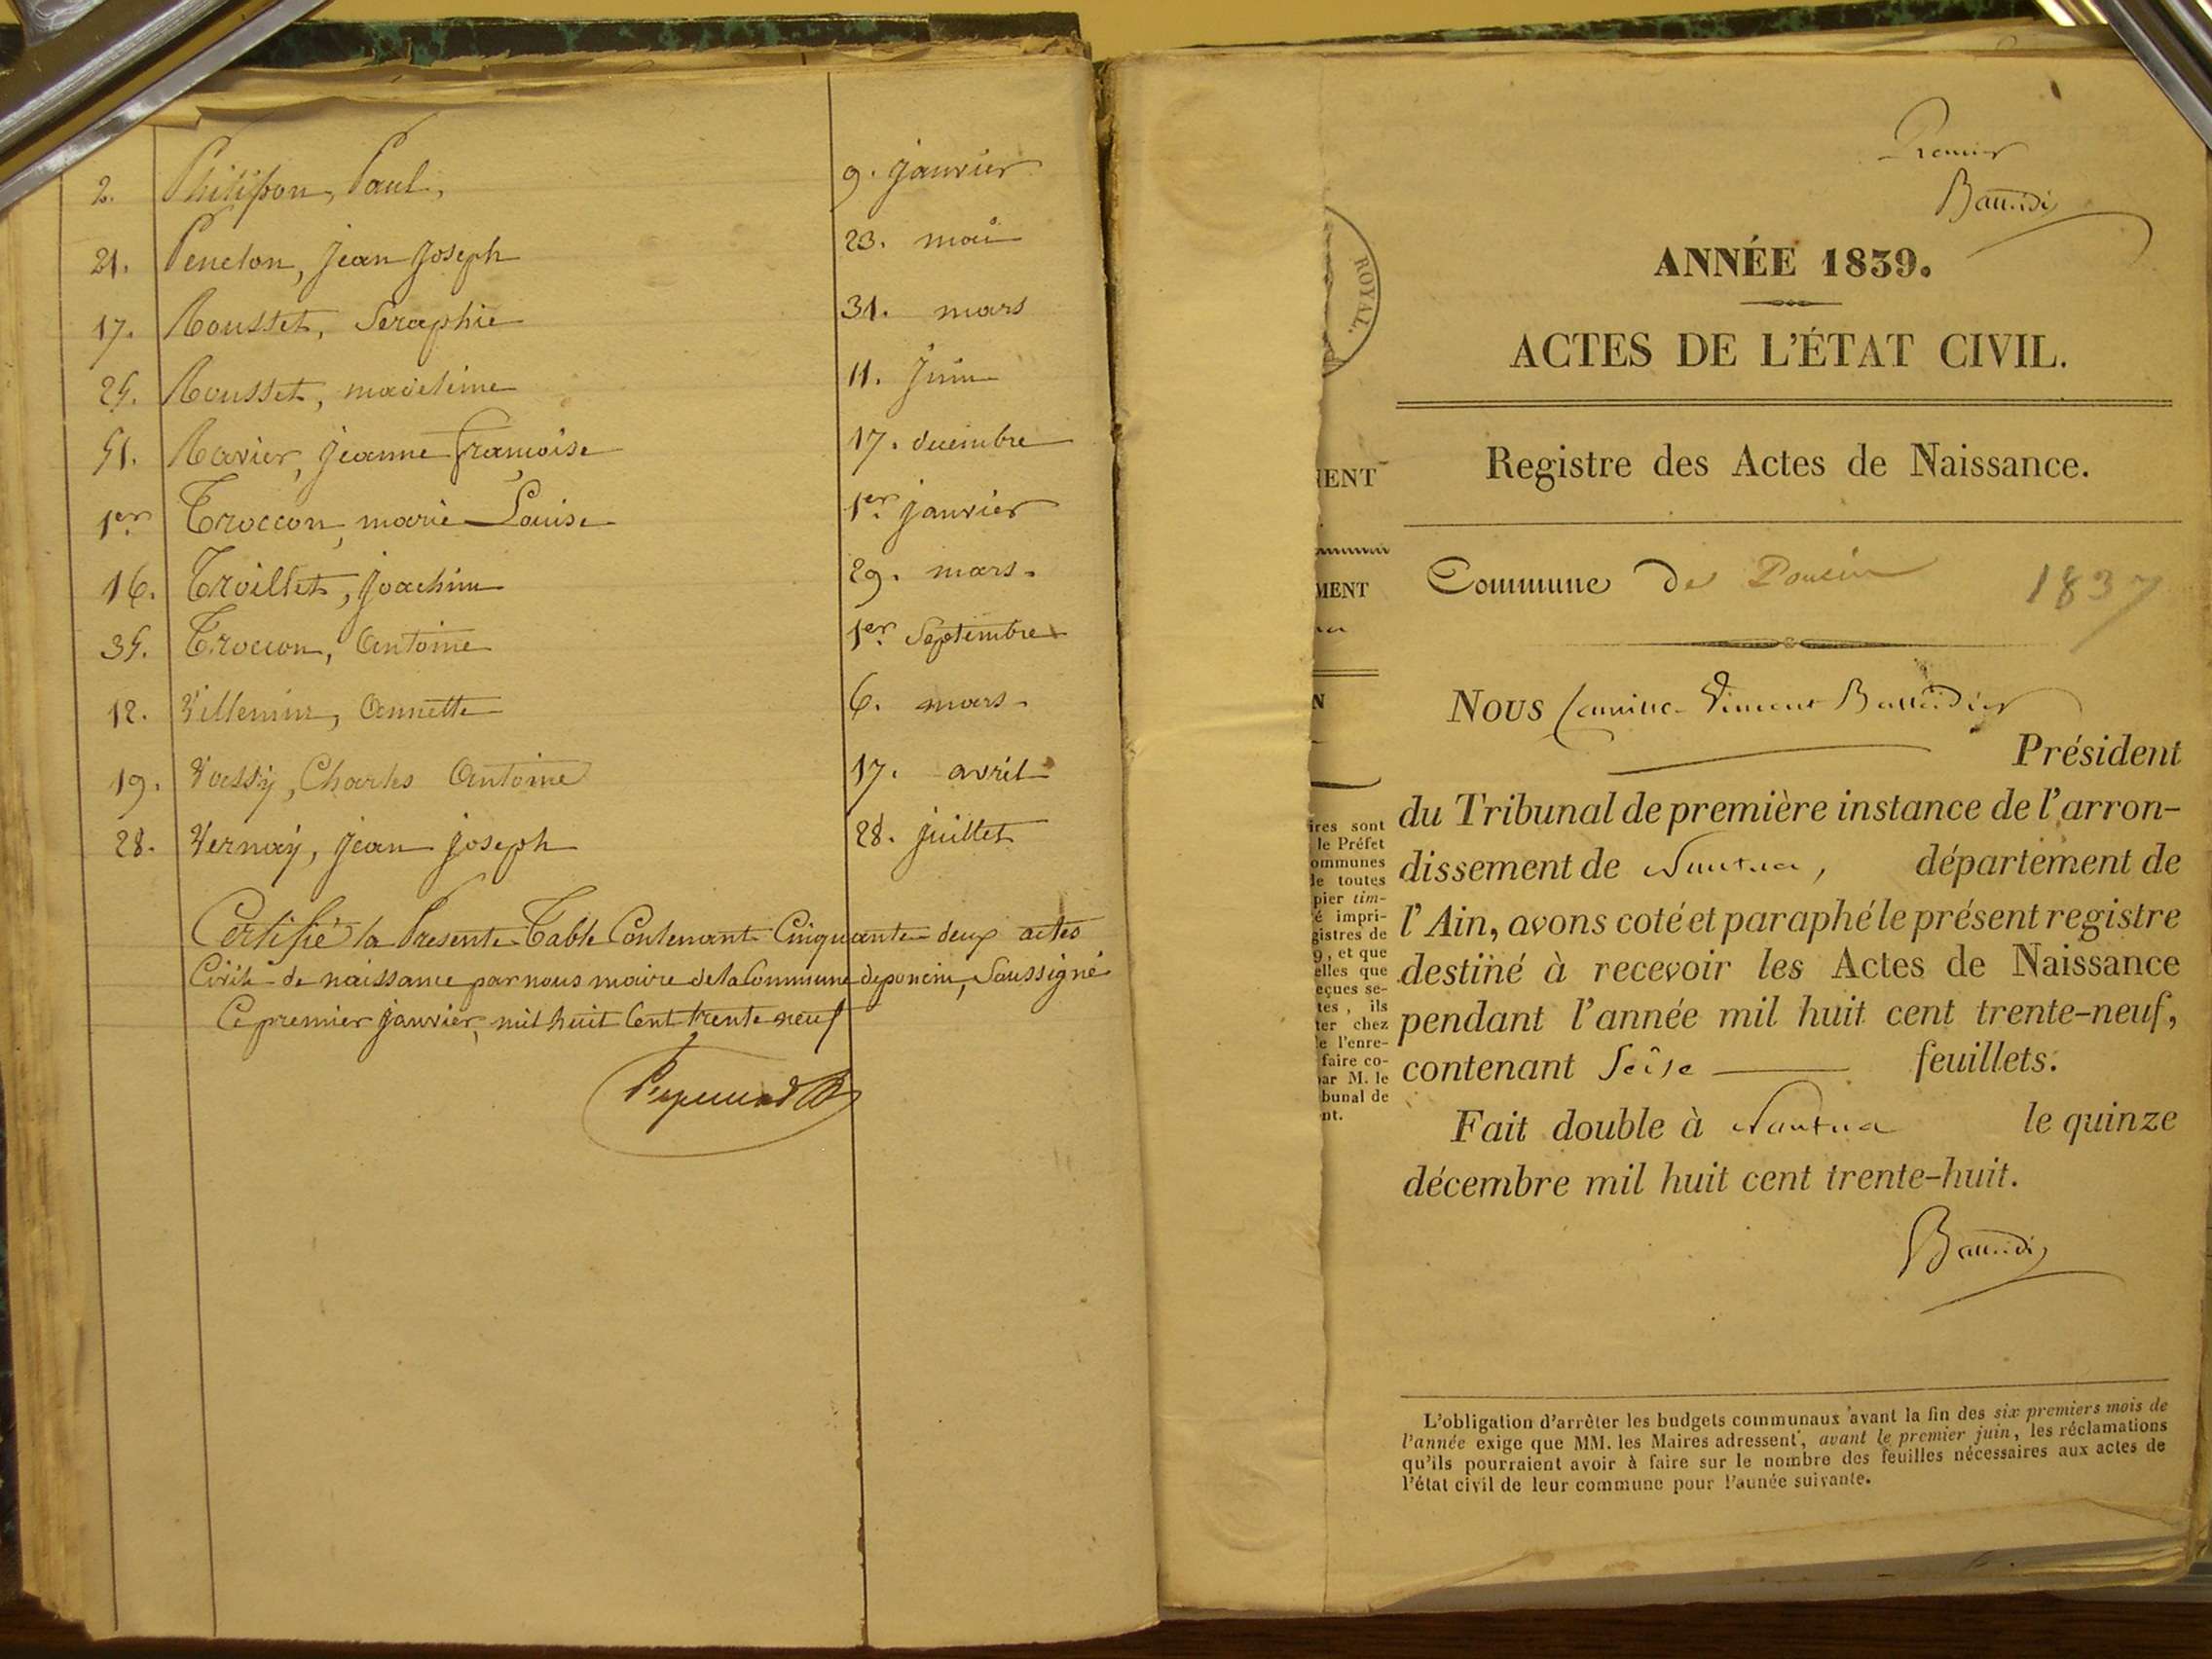 2. Philippon, Paul, 9. janvier
21. Penelon, jean joseph 23. mai
17. Rousset, Seraphie 31. mars
25. Rousset, madeleine 11. Juin
51. Ravier, jeanne françoise 17. decembre
1er Troccon, marie Louise 1er janvier
16. Troillet, joachim 29. mars.
35. Troccon, Antoine 1er Septembre
12. Villemin, Annette 6. mars.
19. Vassy, Charles Antoine 17. avril
28. Vernay, jean joseph 28. juillet
Certifié la Presente Table Contenant Cinquante deux actes
Civils de naissance par nous maire de la Commune de poncin, Soussigné
Ce premier janvier, mil huit Cent trente neuf
ROYAL.
MENT
ires sont
le Préfet
ommunes
de toutes
pier tim-
é impri-
gistres de
9, et que
elles que
eçues se-
tes, ils
ter chez
e l'enre-
faire co-
par M. le
bunal de
nt.
Premier
ANNÉE 1839.
ACTES DE L'ÉTAT CIVIL.
Registre des Actes de Naissance.
Commune de Poncin 1837
Nous Camille Vincent
Président
du Tribunal de première instance de l'arron-
dissement de Nantua, département de
l'Ain, avons coté et paraphé le présent registre
destiné à recevoir les Actes de Naissance
pendant l'année mil huit cent trente-neuf,
contenant Seise feuillets.
Fait double à Nantua le quinze
décembre mil huit cent trente-huit.
L'obligation d'arrêter les budgets communaux avant la fin des six premiers mois de
l'année exige que MM. les Maires adressent, avant le premier juin, les réclamations
qu'ils pourraient avoir à faire sur le nombre des feuilles nécessaires aux actes de
l'état civil de leur commune pour l'année suivante.